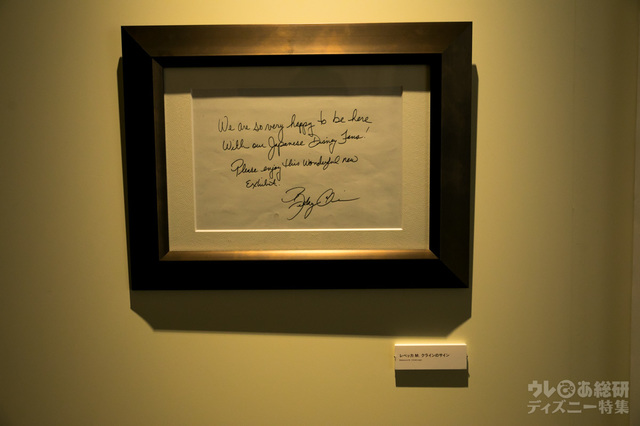 We are so very happy to be here
With our Japanese Disney Fans!
Please enjoy this wonderful new
Exhibit.
レベッカ M. クラインのサイン
ウレぴあ総研
ディズニー特集